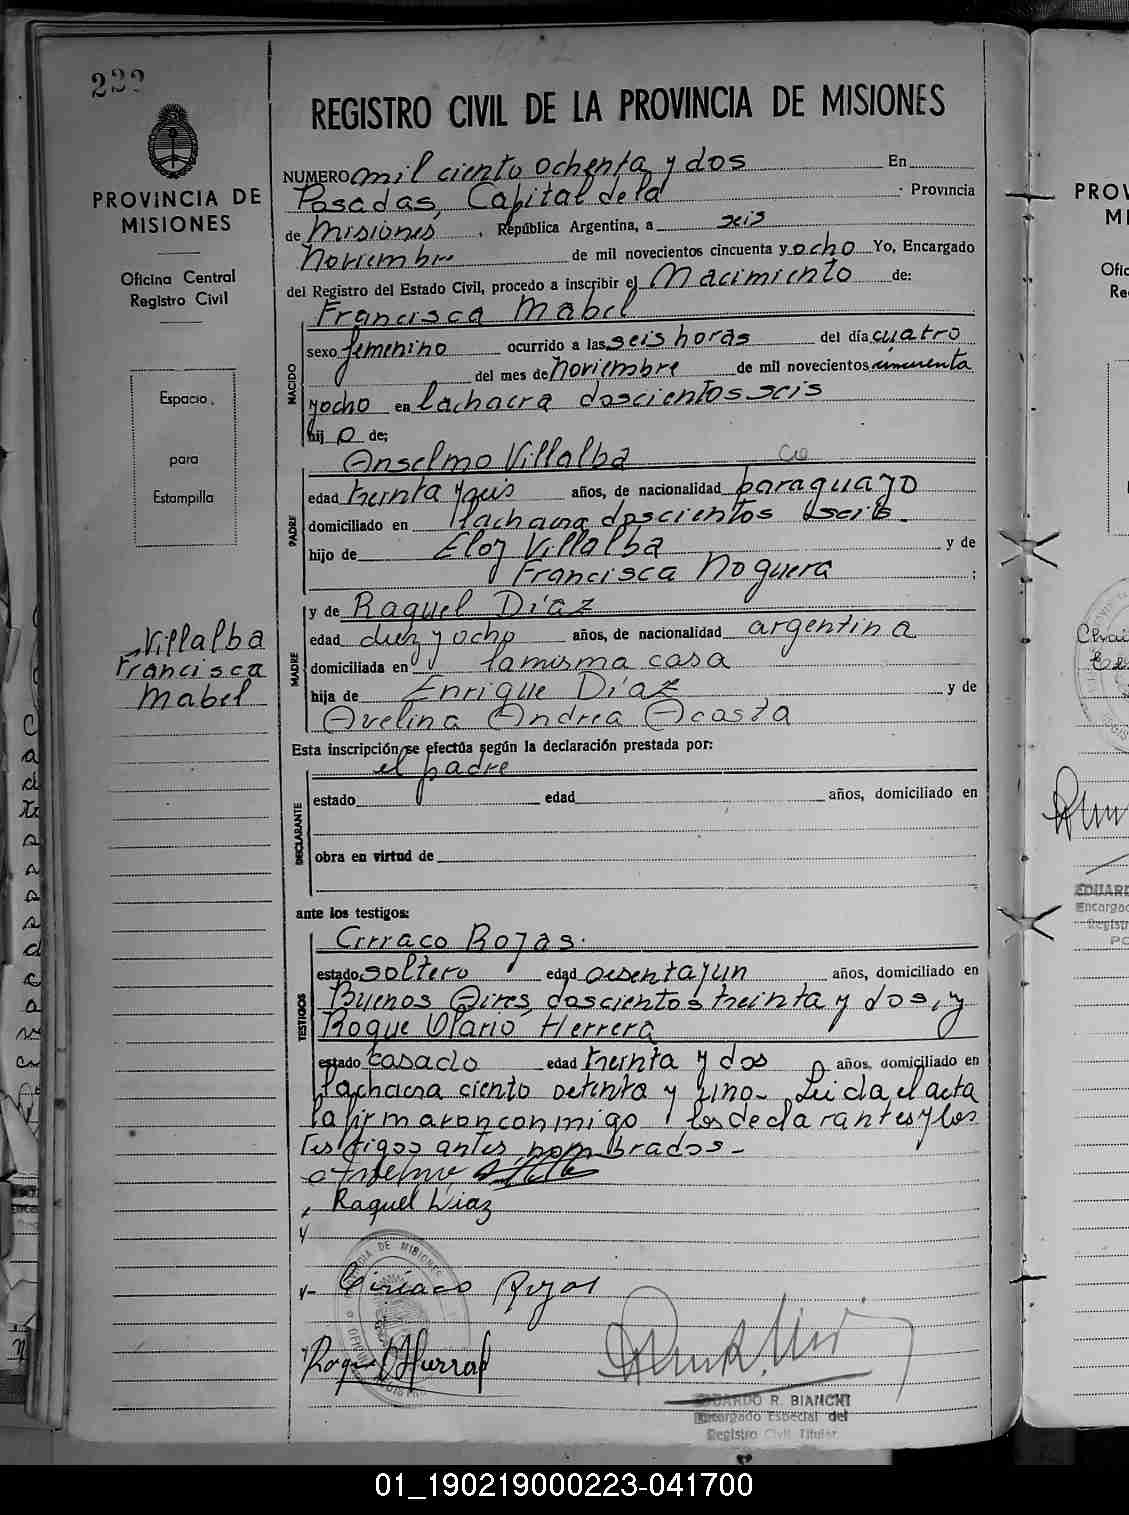 222
PROVINCIA DE
MISIONES
Oficina Central
Registro Civil
Espacio
para
Estampilla
Villalba
Francisca
Mabel
REGISTRO CIVIL DE LA PROVINCIA DE MISIONES
NUMERO mil ciento ochenta y dos En
Posadas, Capital de la Provincia
de Misiones, República Argentina, a seis
Noviembre de mil novecientos cincuenta y ocho Yo, Encargado
del Registro del Estado Civil, procedo a inscribir el Nacimiento de:
Francisca Mabel
NACIDO
sexo femenino ocurrido a las seis horas del día cuatro
del mes de noviembre de mil novecientos cincuenta
y ocho en la chacra doscientos seis
hij a de:
Anselmo Villalba
PADRE
edad treinta y seis años, de nacionalidad paraguayo
domiciliado en la chacra doscientos seis.
hijo de Eloy Villalba y de
Francisca Noguera ;
y de Raquel Díaz
MADRE
edad diez y ocho años, de nacionalidad argentina
domiciliada en la misma casa
hija de Enrique Díaz y de
Avelina Andrea Acosta
Esta inscripción se efectúa según la declaración prestada por:
el padre
DECLARANTE
estado edad años, domiciliado en
obra en virtud de
ante los testigos:
TESTIGOS
Cirraco Rojas.
estado soltero edad sesenta y un años, domiciliado en
Buenos Aires, doscientos treinta y dos, y
Roque Herrera
estado casado edad treinta y dos años, domiciliado en
la chacra ciento setenta y uno. Leida el acta
la firmaron conmigo los declarantes y los
testigos antes nombrados-
Anselmo Villalba
Raquel Diaz
Ciriaco Rojas
DE MISIONES
EDUARDO R. BIANCHI
Encargado Especial del
Registro Civil Titular
PROV
MI
EDUARD
Encargado
Registr
PO
01_190219000223-041700